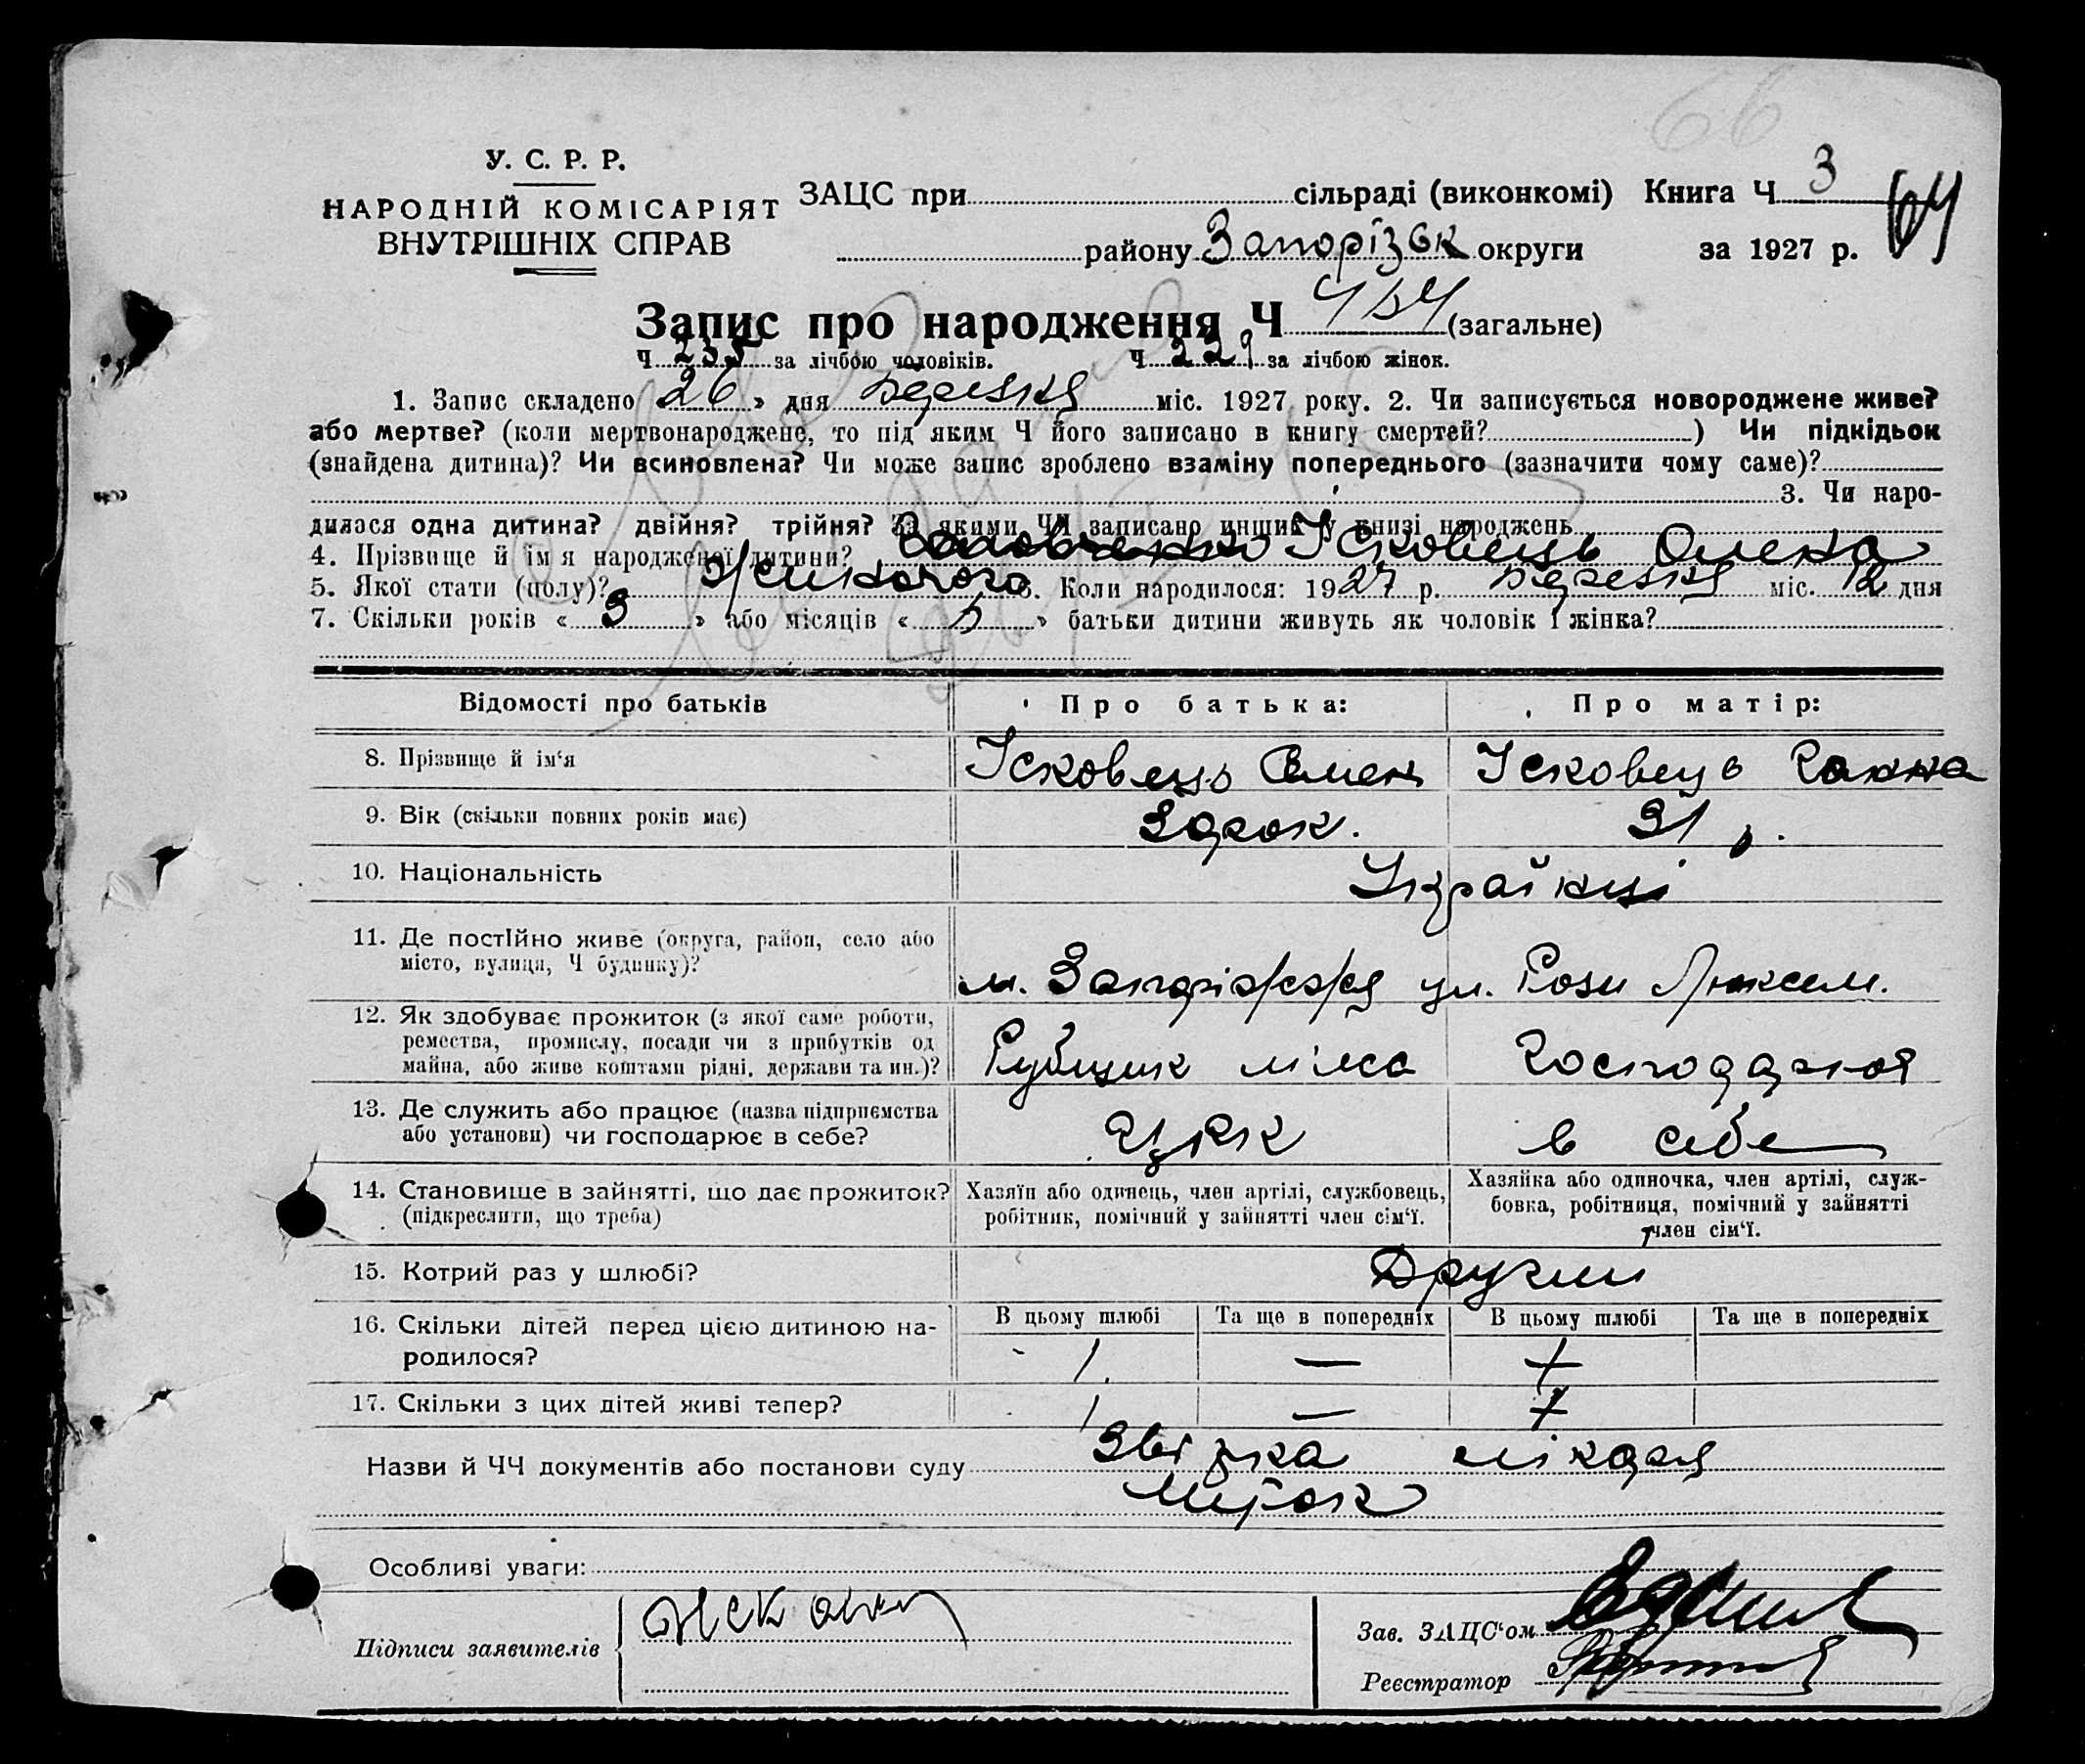 66
У. С. Р. Р.
НАРОДНІЙ КОМІСАРІЯТ
ВНУТРІШНІХ СПРАВ
ЗАЦС при сільраді (виконкомі) Книга Ч 3
64
району Запорізьк округи за 1927 р.
Запис про народження Ч 454 (загальне)
Ч 235 за лічбою чоловіків. Ч 229 за лічбою жінок.
1. Запис складено «26» дня Березня міс. 1927 року. 2. Чи записується новороджене живе?
або мертве? (коли мертвонароджене, то під яким Ч його записано в книгу смертей? ) Чи підкідьок
(знайдена дитина)? Чи всиновлена? Чи може запис зроблено взаміну попереднього (зазначити чому саме)?
3. Чи наро-
дилося одна дитина? двійня? трійня? За якими ЧЧ записано инших у книзі народжень
4. Прізвище й ім'я народженої дитини? Ісковець Олена
5. Якої стати (полу)? Жиночого 6. Коли народилося: 1927 р. Березня міс. 12 дня
7. Скільки років «3» або місяців « » батьки дитини живуть як чоловік і жінка?
Відомості про батьків Про батька: Про матір:
8. Прізвище й ім'я Ісковець Семен Ісковець Ганна
9. Вік (скільки повних років має) рок. 31 р.
10. Національність Українці
11. Де постІйно живе (округа, район, село або
місто, вулиця, Ч будинку)?
м. Запоріжжя ул. Рози Люксем.
12. Як здобуває прожиток (з якої саме роботи,
ремества, промислу, посади чи з прибутків од
майна, або живе коштами рідні, держави та ин.)?
Рубщик мяса Господарюя
13. Де служить або працює (назва підприємства
або установи) чи господарює в себе?
ЦРК в себе
14. Становище в зайнятті, що дає прожиток?
(підкреслити, що треба)
Хазяїн або одинець, член артілі, службовець,
робітник, помічний у зайнятті член сім'ї.
Хазяйка або одиночка, член артілі, служ-
бовка, робітниця, помічний у зайнятті
член сім'ї.
15. Котрий раз у шлюбі? Другий
16. Скільки дітей перед цією дитиною на-
родилося?
В цьому шлюбі Та ще в попередніх В цьому шлюбі Та ще в попередніх
1 —
17. Скільки з цих дітей живі тепер? 1 —
Назви й ЧЧ документів або постанови суду Звістка лікаря
Особливі уваги:
Підписи заявителів
Зав. ЗАЦС'ом
Реєстратор